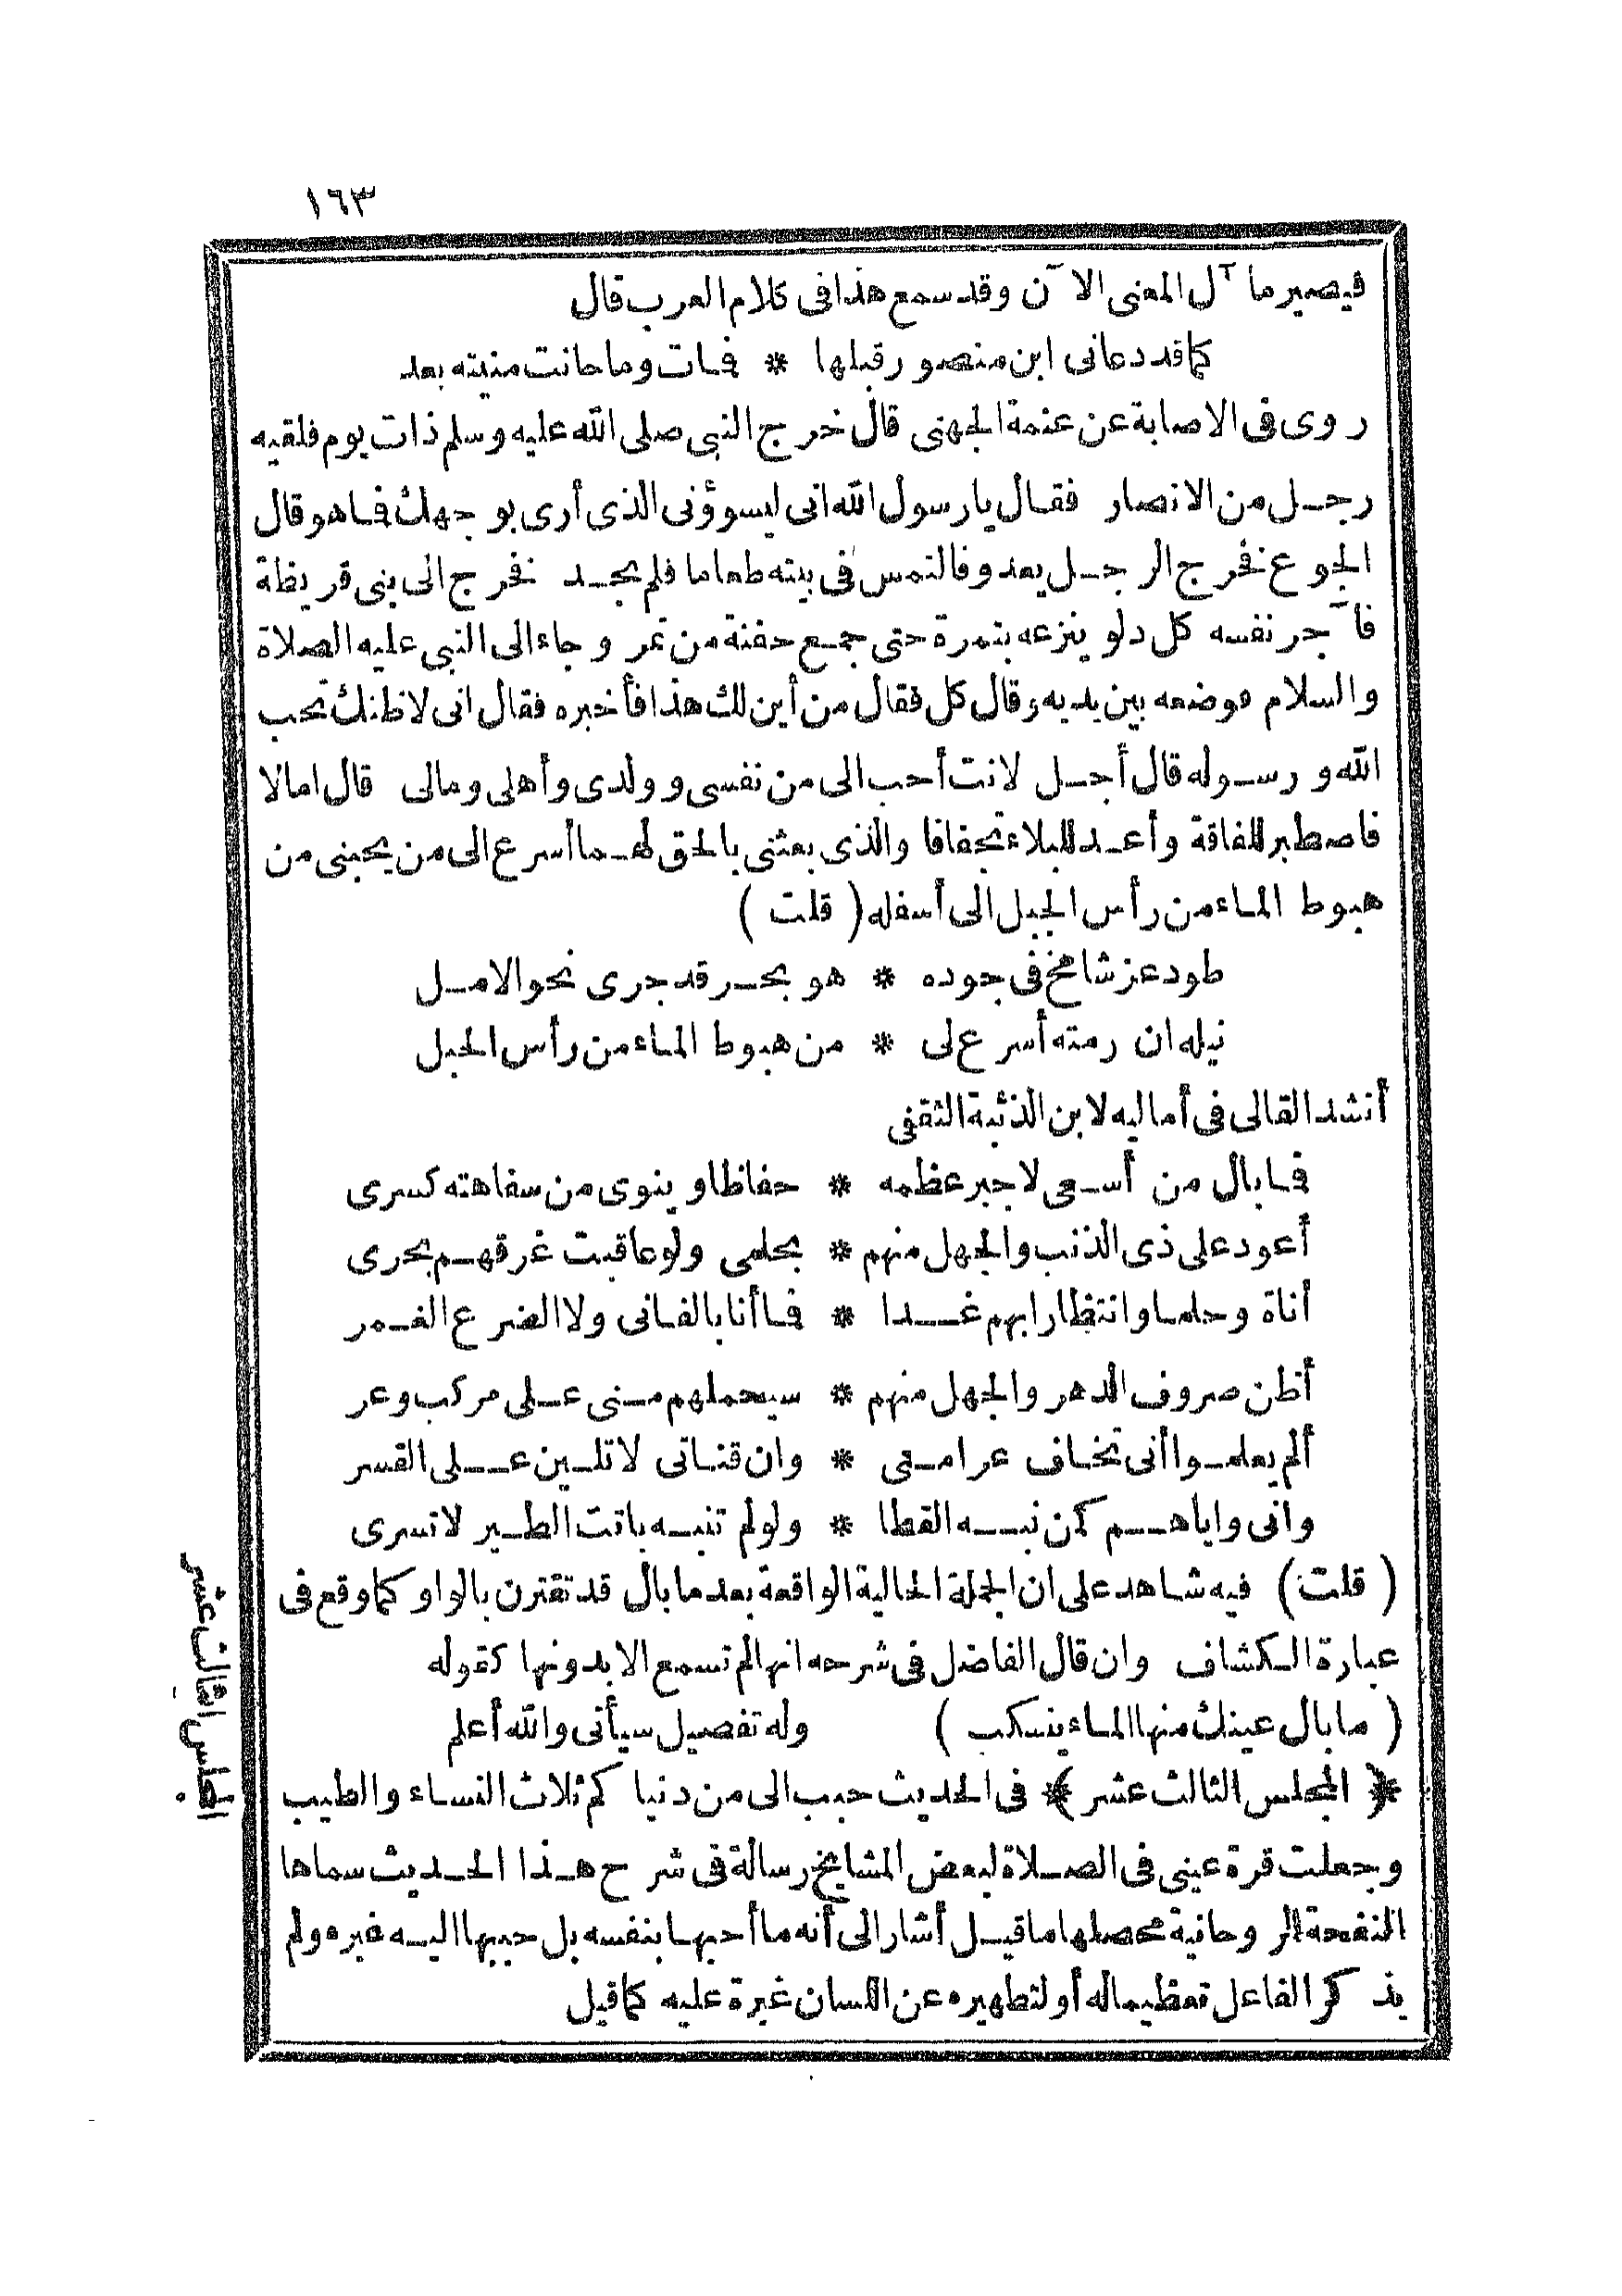 ١٦٣
فيصير مآل المعنى الآن وقد سمع هذا في كلام العرب قال
كما قد دعانى ابن منصور قبلها * فمات وما حانت منيته بعد
روى فى الاصابة عن عنمة الجهنى قال خرج النبى صلى الله عليه وسلم ذات يوم فلقيه
رجل من الانصار فقال يا رسول الله انى ليسوؤنى الذى أرى بوجهك فما هو قال
الجوع فخرج الرجل يعدو فالتمس فى بيته طعاما فلم يجد فخرج الى بنى قريظة
فآجر نفسه كل دلو ينزعه بتمرة حتى جمع حفنة من تمر وجاء الى النبى عليه الصلاة
والسلام فوضعه بين يديه وقال كل فقال من أين لك هذا فأخبره فقال انى لاظنك تحب
الله ورسوله قال أجل لانت أحب الى من نفسى وولدى وأهلى ومالى قال امالا
فاصطبر للفاقة وأعد للبلاء تجفافا والذى بعثنى بالحق لهما أسرع الى من يحبنى من
هبوط الماء من رأس الجبل الى أسفله (قلت)
طود عز شامخ فى جوده * هو بحر قد جرى نحو الامل
نيله ان رمته أسرع لى * من هبوط الماء من رأس الجبل
أنشد القالى فى أماليه لابن الذئبة الثقفى
فما بال من أسعى لاجبر عظمه * حفاظا وينوى من سفاهته كسرى
أعود على ذى الذنب والجهل منهم * بحلمى ولو عاقبت غرقهم بحرى
أناة وحلما وانتظارا بهم غدا * فما أنا بالفانى ولا الضرع الغمر
أظن صروف الدهر والجهل منهم * سيحملهم منى على مركب وعر
ألم يعلموا أنى تخاف عرامتى * وان قناتى لا تلين على القسر
وانى واياهم كمن نبه القطا * ولو لم تنبه باتت الطير لا تسرى
(قلت) فيه شاهد على ان الجملة الحالية الواقعة بعد ما بال قد تقترن بالواو كما وقع فى
عبارة الكشاف وان قال الفاضل فى شرحه انها لم تسمع الا بدونها كقوله
(ما بال عينك منها الماء ينسكب) وله تفصيل سيأتى والله أعلم
﴿المجلس الثالث عشر﴾ فى الحديث حبب الى من دنياكم ثلاث النساء والطيب
وجعلت قرة عينى فى الصلاة لبعض المشايخ رسالة فى شرح هذا الحديث سماها
النفحة الروحانية محصلها ما قيل أشار الى أنه ما أحبها بنفسه بل حببها اليه غيره ولم
يذكر الفاعل تعظيما له أو لتطهيره عن اللسان غيرة عليه كما قيل
المجلس الثالث عشر